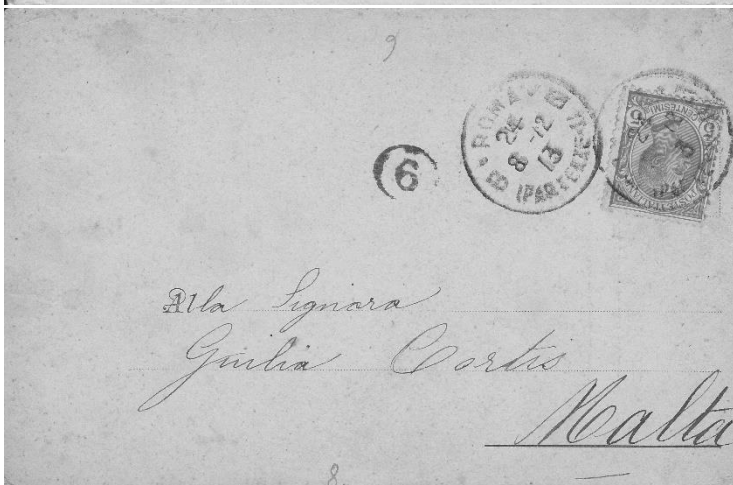 9
ROMA
24
8 - 12
13
(PARTENZE)
6
5 5
Alla Signora
Giulia Cortis
Malta
8